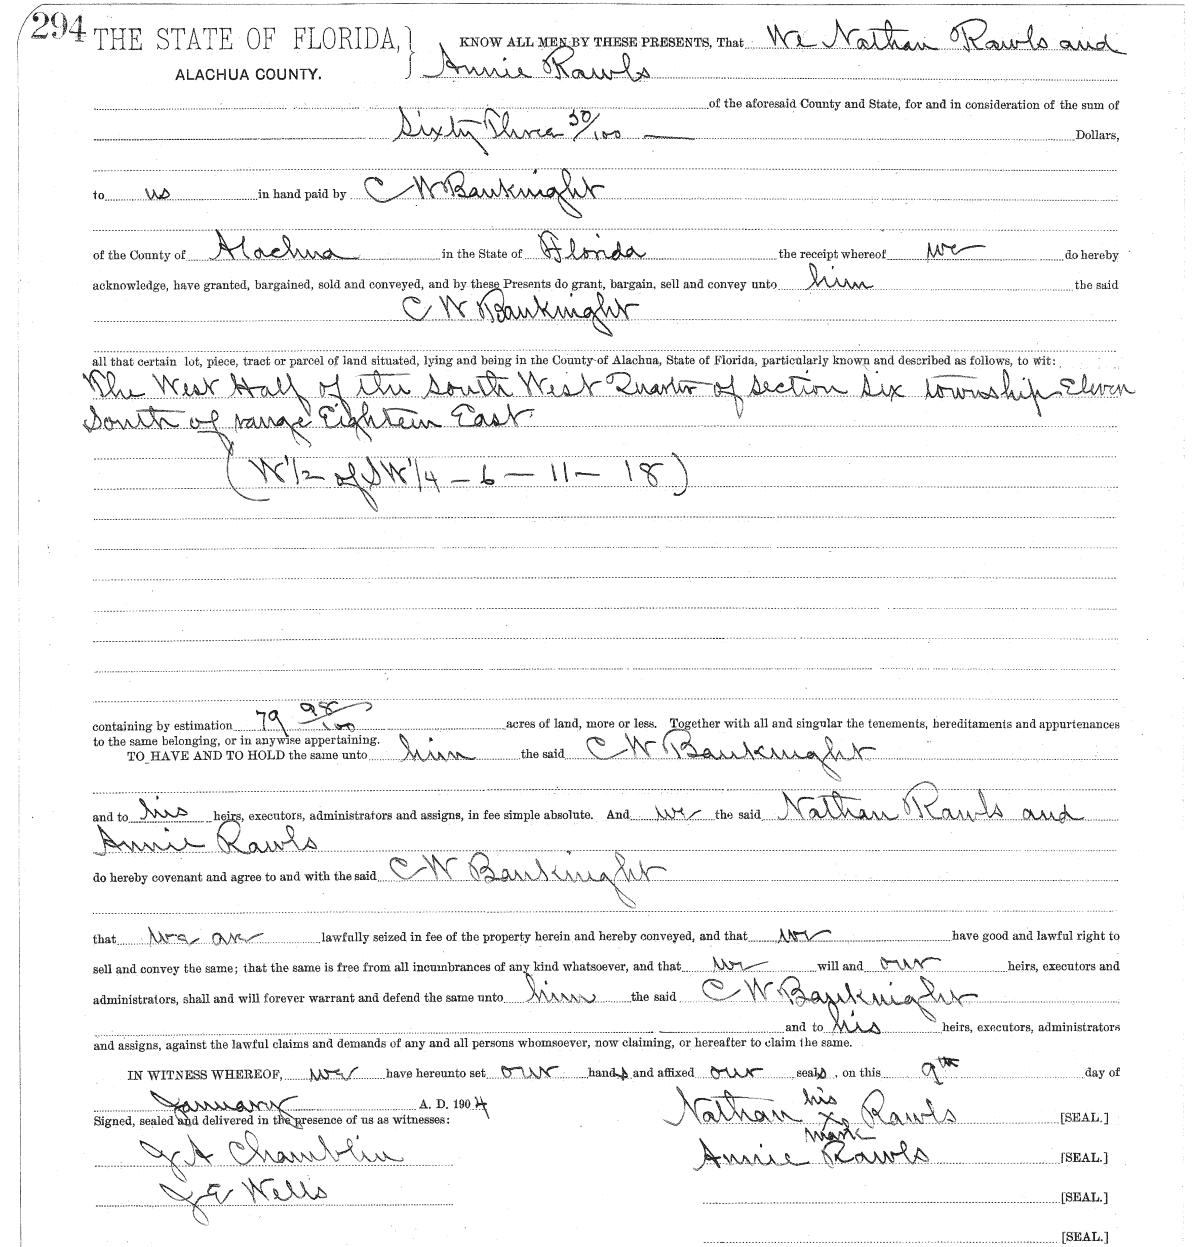 294 THE STATE OF FLORIDA, } KNOW ALL MEN BY THESE PRESENTS, That We Nathan Rawls and
ALACHUA COUNTY. Annie Rawls
of the aforesaid County and State, for and in consideration of the sum of
Sixty Three 50/100 Dollars,
to us in hand paid by C W Bauknight
of the County of Alachua in the State of Florida the receipt whereof we do hereby
acknowledge, have granted, bargained, sold and conveyed, and by these Presents do grant, bargain, sell and convey unto him the said
C W Bauknight
all that certain lot, piece, tract or parcel of land situated, lying and being in the County of Alachua, State of Florida, particularly known and described as follows, to wit:
The West Half of the South West Quarter of section six township Eleven
South of range Eighteen East
(W 1/2 of SW 1/4 - 6 - 11 - 18)
containing by estimation 79 98/100 acres of land, more or less. Together with all and singular the tenements, hereditaments and appurtenances
to the same belonging, or in anywise appertaining.
TO HAVE AND TO HOLD the same unto him the said C W Bauknight
and to his heirs, executors, administrators and assigns, in fee simple absolute. And we the said Nathan Rawls and
Annie Rawls
do hereby covenant and agree to and with the said C W Bauknight
that we are lawfully seized in fee of the property herein and hereby conveyed, and that we have good and lawful right to
sell and convey the same; that the same is free from all incumbrances of any kind whatsoever, and that we will and our heirs, executors and
administrators, shall and will forever warrant and defend the same unto him the said C W Bauknight
and to his heirs, executors, administrators
and assigns, against the lawful claims and demands of any and all persons whomsoever, now claiming, or hereafter to claim the same.
IN WITNESS WHEREOF, we have hereunto set our hands and affixed our seals, on this 9th day of
January A. D. 1904
Signed, sealed and delivered in the presence of us as witnesses:
his
Nathan X Rawls [SEAL.]
mark
J A Chamblin Annie Rawls [SEAL.]
J E Wells [SEAL.]
[SEAL.]